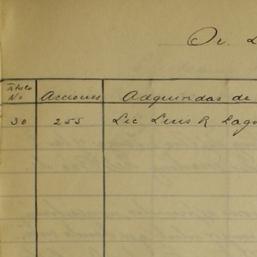 Dr. L
Titulo No Acciones Adquiridas de
30 255 Lic Luis R Lago